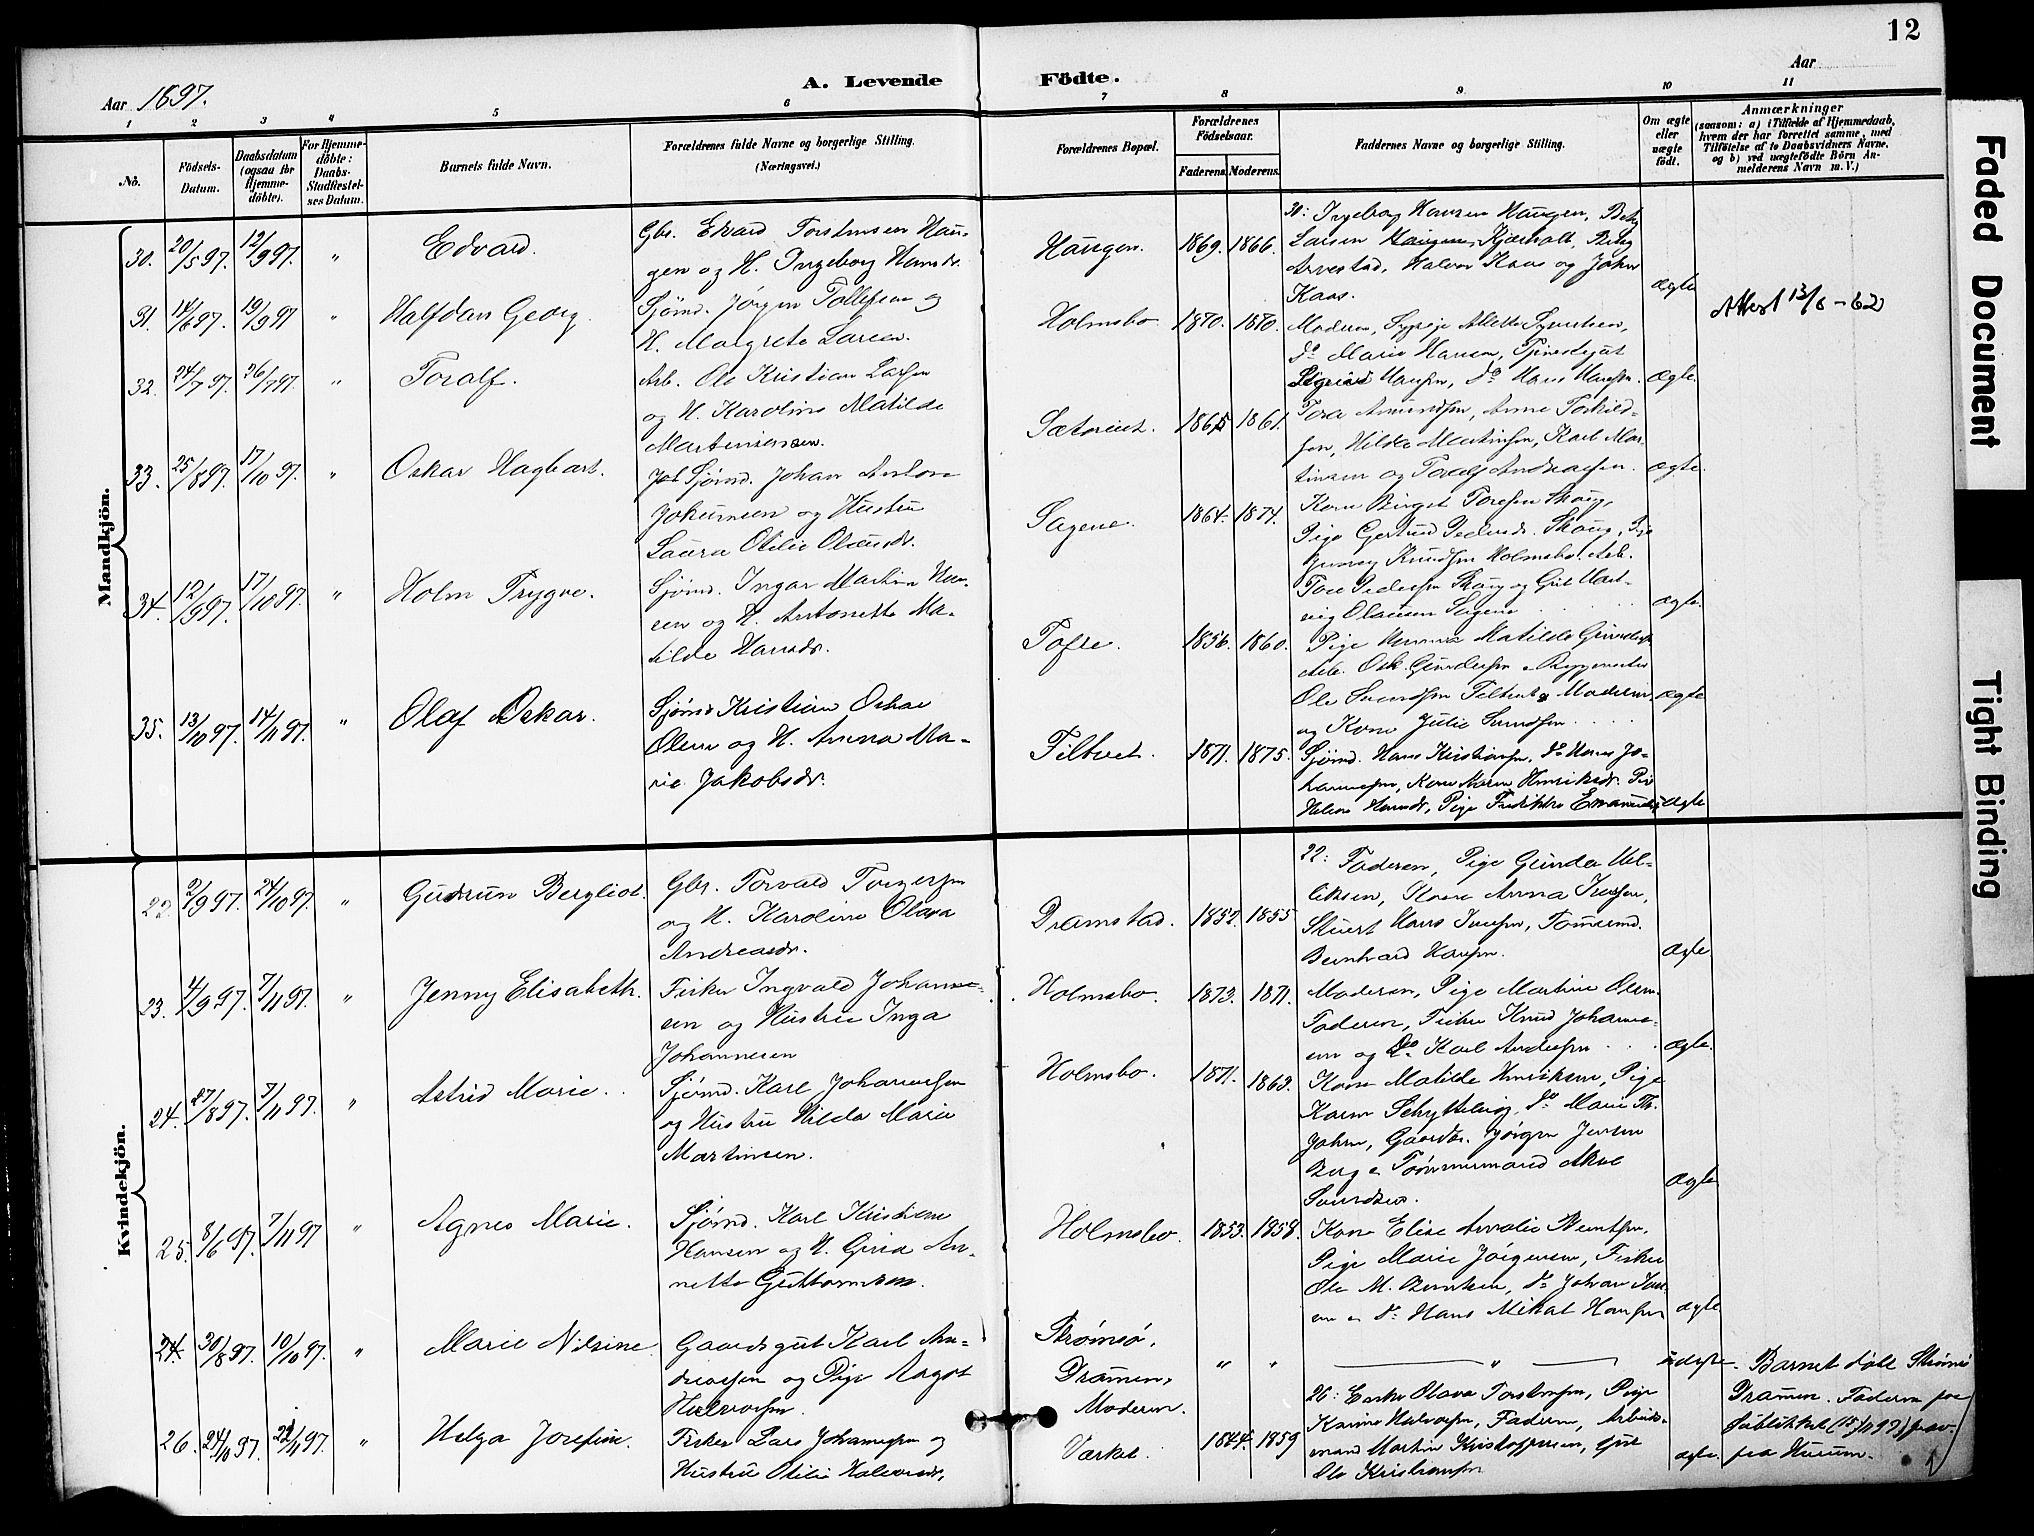 12
Aar 1897.
A. Levende Födte.
Aar
1 2 3 4 5 6 7 8 9 10 11
No.
Födsels-Datum.
Daabsdatum (ogsaa for Hjemme-döbte).
For Hjemme-döbte: Daabs-Stadfæstel-ses Datum.
Barnets fulde Navn.
Forældrenes fulde Navne og borgerlige Stilling.
(Næringsvei.)
Forældrenes Bopæl.
Forældrenes Födselsaar.
Faderens. Moderens.
Faddernes Navne og borgerlige Stilling.
Om ægte eller uægte födt.
Anmærkninger
(saasom: a) i Tilfælde af Hjemmedaab,
hvem der har forrettet samme, med
Tilföielse af to Daabsvidners Navne,
og b) ved uægtefödte Börn An-
melderens Navn m. V.)
Mandkjön.
30. 20/5 97. 12/9 97. " Edvard.
Gbr. Edvard Torstensen Hau-
gen og H. Ingeborg Hansdr.
Haugen. 1869. 1866.
30: Ingeborg Hansen Haugen, Betsy
Larsen Kjærholt,
Halvor Kaas og Johan
Kaas. ægte
31. 14/6 97. 19/9 97 " Halfdan Georg.
Sjømd. Jörgen Tollefsen og
H. Malgrete Larsen.
Holmsbo. 1870. 1870.
Moderen, Sypige
do Marie Hansen, Tjenestegut
Hansen, do Hans Hansen. Ægte.
Attest 13/6-62
32. 24/7 97. 26/7 97. " Toralf.
Arb. Ole Kristian Larsen
og H. Karoline Matilde
Martinsen.
Sætreiet. 1865 1861.
Tora Amundsen, Anne Torkild-
sen, Hilda Martinsen, Karl Mar-
tinsen og Toralf Andreasen. ægte.
33. 25/8 97. 17/10 97. " Oskar Hagbart.
Sjømd. Johan Anton
Johansen og Hustru
Laura Otilie Olausdr.
Sagene. 1864. 1874.
Kone Birget Toresen Skaug,
Pige Gertrud Pedersdr. Skaug, Pige
Knudsen Holmsbo. Arb.
Tore Pedersen Skaug og Gut Hart-
vig Olausen Sagene ægte.
34. 12/9 97. 17/10 97. " Holm Trygve.
Sjømd. Ingar Martin Han-
sen og H. Antonette Ma-
tilde Hansdr.
Tofte. 1856. 1860.
Pige Hanna Matilde Gundersen
Arb. Osk. Gundersen, Byggmester
Ole Svendsen Filtvet, Moderen
og Kone Julie Svendsen ægte
35. 13/10 97. 14/11 97. " Olaf Oskar.
Sjømd Kristian Oskar
Olsen og H. Anna Ma-
rie Jakobsdr.
Filtvet. 1871. 1875.
Sjømd. Hans Kristiansen, do Hans Jo-
hannesen, Kone Maren Henriksdr. Pige
Helene Hansdr, Pige Fredrikke Emanuels. ægte
Kvindekjön.
22. 2/9 97. 24/10 97. " Gudrun Bergliot.
Gbr. Torvald Torgersen
og H. Karoline Olava
Andreasdr.
Dramstad. 1852. 1855
22: Faderen, Pige Gunda Hel-
liksen, Kone Anna Iversen,
Skuesp. Hans Iversen, Tømmermd.
Bernhard Hansen. ægte
23. 4/9 97. 7/11 97. " Jenny Elisabeth.
Fisker Ingvald Johanne-
sen og Hustru Inga
Johannesen
Holmsbo. 1873. 1871.
Moderen, Pige Martine Olsen.
Faderen, Fisker Knud Johanne-
sen og do Karl Andersen ægte.
24. 27/8 97. 7/11 97. " Astrid Marie.
Sjømd. Karl Johannesen
og Hustru Hilda Marie
Martinsen.
Holmsbo. 1871. 1863.
Kone Matilde Henriksen, Pige
Karen do Marie Th.
Johnsen, Jörgen Jensen
Berg & Tömmermand Aksel
Svendsen. ægte
25. 8/6 97. 7/11 97 " Agnes Marie.
Sjømd. Karl Kristian
Hansen og H. Gina An-
nette Guttormsen.
Holmsbo. 1853. 1858.
Kone Elise Amalie Berntsen,
Pige Marie Jörgensen, Fisker
Ole M. Berntsen, do Johan Iver-
sen & do Hans Mikal Hansen ægte
24. 30/8 97. 10/10 97. " Marie Nilsine
Gaardsgut Karl An-
dreassen og Pige Aagot
Halvorsen.
Strömsö,
Dramen,
Moderen.
" " " uægte.
Barnet döbt Strömsö
Dramen. Faderen paa
(15/11 97) frav.
fra Hurum.
26. 24/10 97. 22/11 97. " Helga Josefine.
Fisker Lars Johannesen og
Hustru Otilie Halvorsdr.
Værket. 1844. 1859
26: Enke Olava Torstensen, Pige
Karine Halvorsen, Faderen, Arbeids-
mand Martin Kristoffersen, Gut
Ole Kristiansen ægte.
Faded Document
Tight Binding